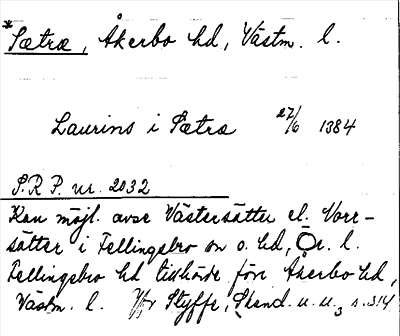 *Sætra, Åkerbo hd, Västm. l.
Laurins i Sætra 27/6 1384
S.R.P. nr. 2032
Kan möjl. avse Västersätter el. Norr-
sätter i Fellingsbro sn o. hd, Ör. l.
Fellingsbro hd tillhörde förr Åkerbo hd,
Västm. l. Jfr Styffe, Skand. u. u.3 s. 314